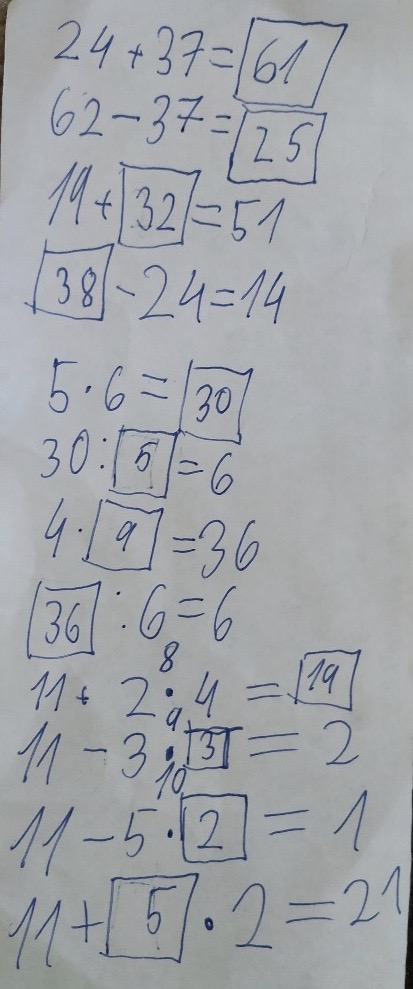 24+37=61
62-37=25
19+32=51
38-24=14
5·6=30
30:5=6
4·9=36
36:6=6
8
11+2·4=19
9
11-3·3=2
10
11-5·2=1
11+5·2=21